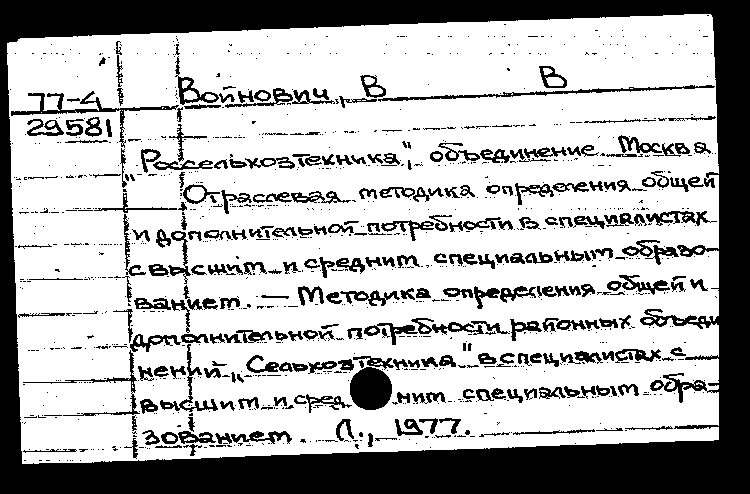 77-4 Войнович, В В
29581
„Россельхозтехника", объединение Москва
Отраслевая методика определения общей
и дополнительной потребности в специалистах
с высшим и средним специальным образо-
ванием. — Методика определения общей и
дополнительной потребности районных объеди
нений „Сельхозтехника" в специалистах с
высшим и сред ним специальным обра-
зованием. Л., 1977.